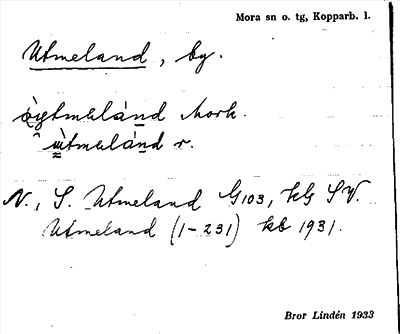 Mora sn o. tg, Kopparb. l.
Utmeland, by.
òytmelánd Mork.
ùtmelánd r.
N., S. Utmeland G103, kg SV.
Utmeland (1-231) kb 1931.
Bror Lindén 1933